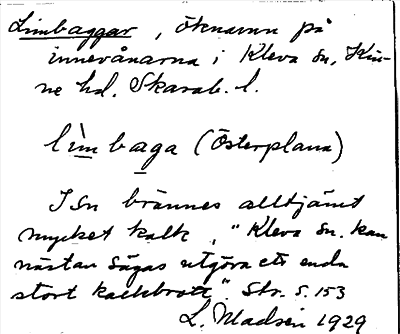 Limbaggar, öknamn på
innevånarna i Kleva sn, Kin-
ne hd. Skarab. l.
lìmbaga (Österplana)
I sn brännes alltjämt
mycket kalk, "Kleva sn. kan
nästan sägas utgöra ett enda
stort kalkbrott". Str. s. 153
L. Madsén 1929